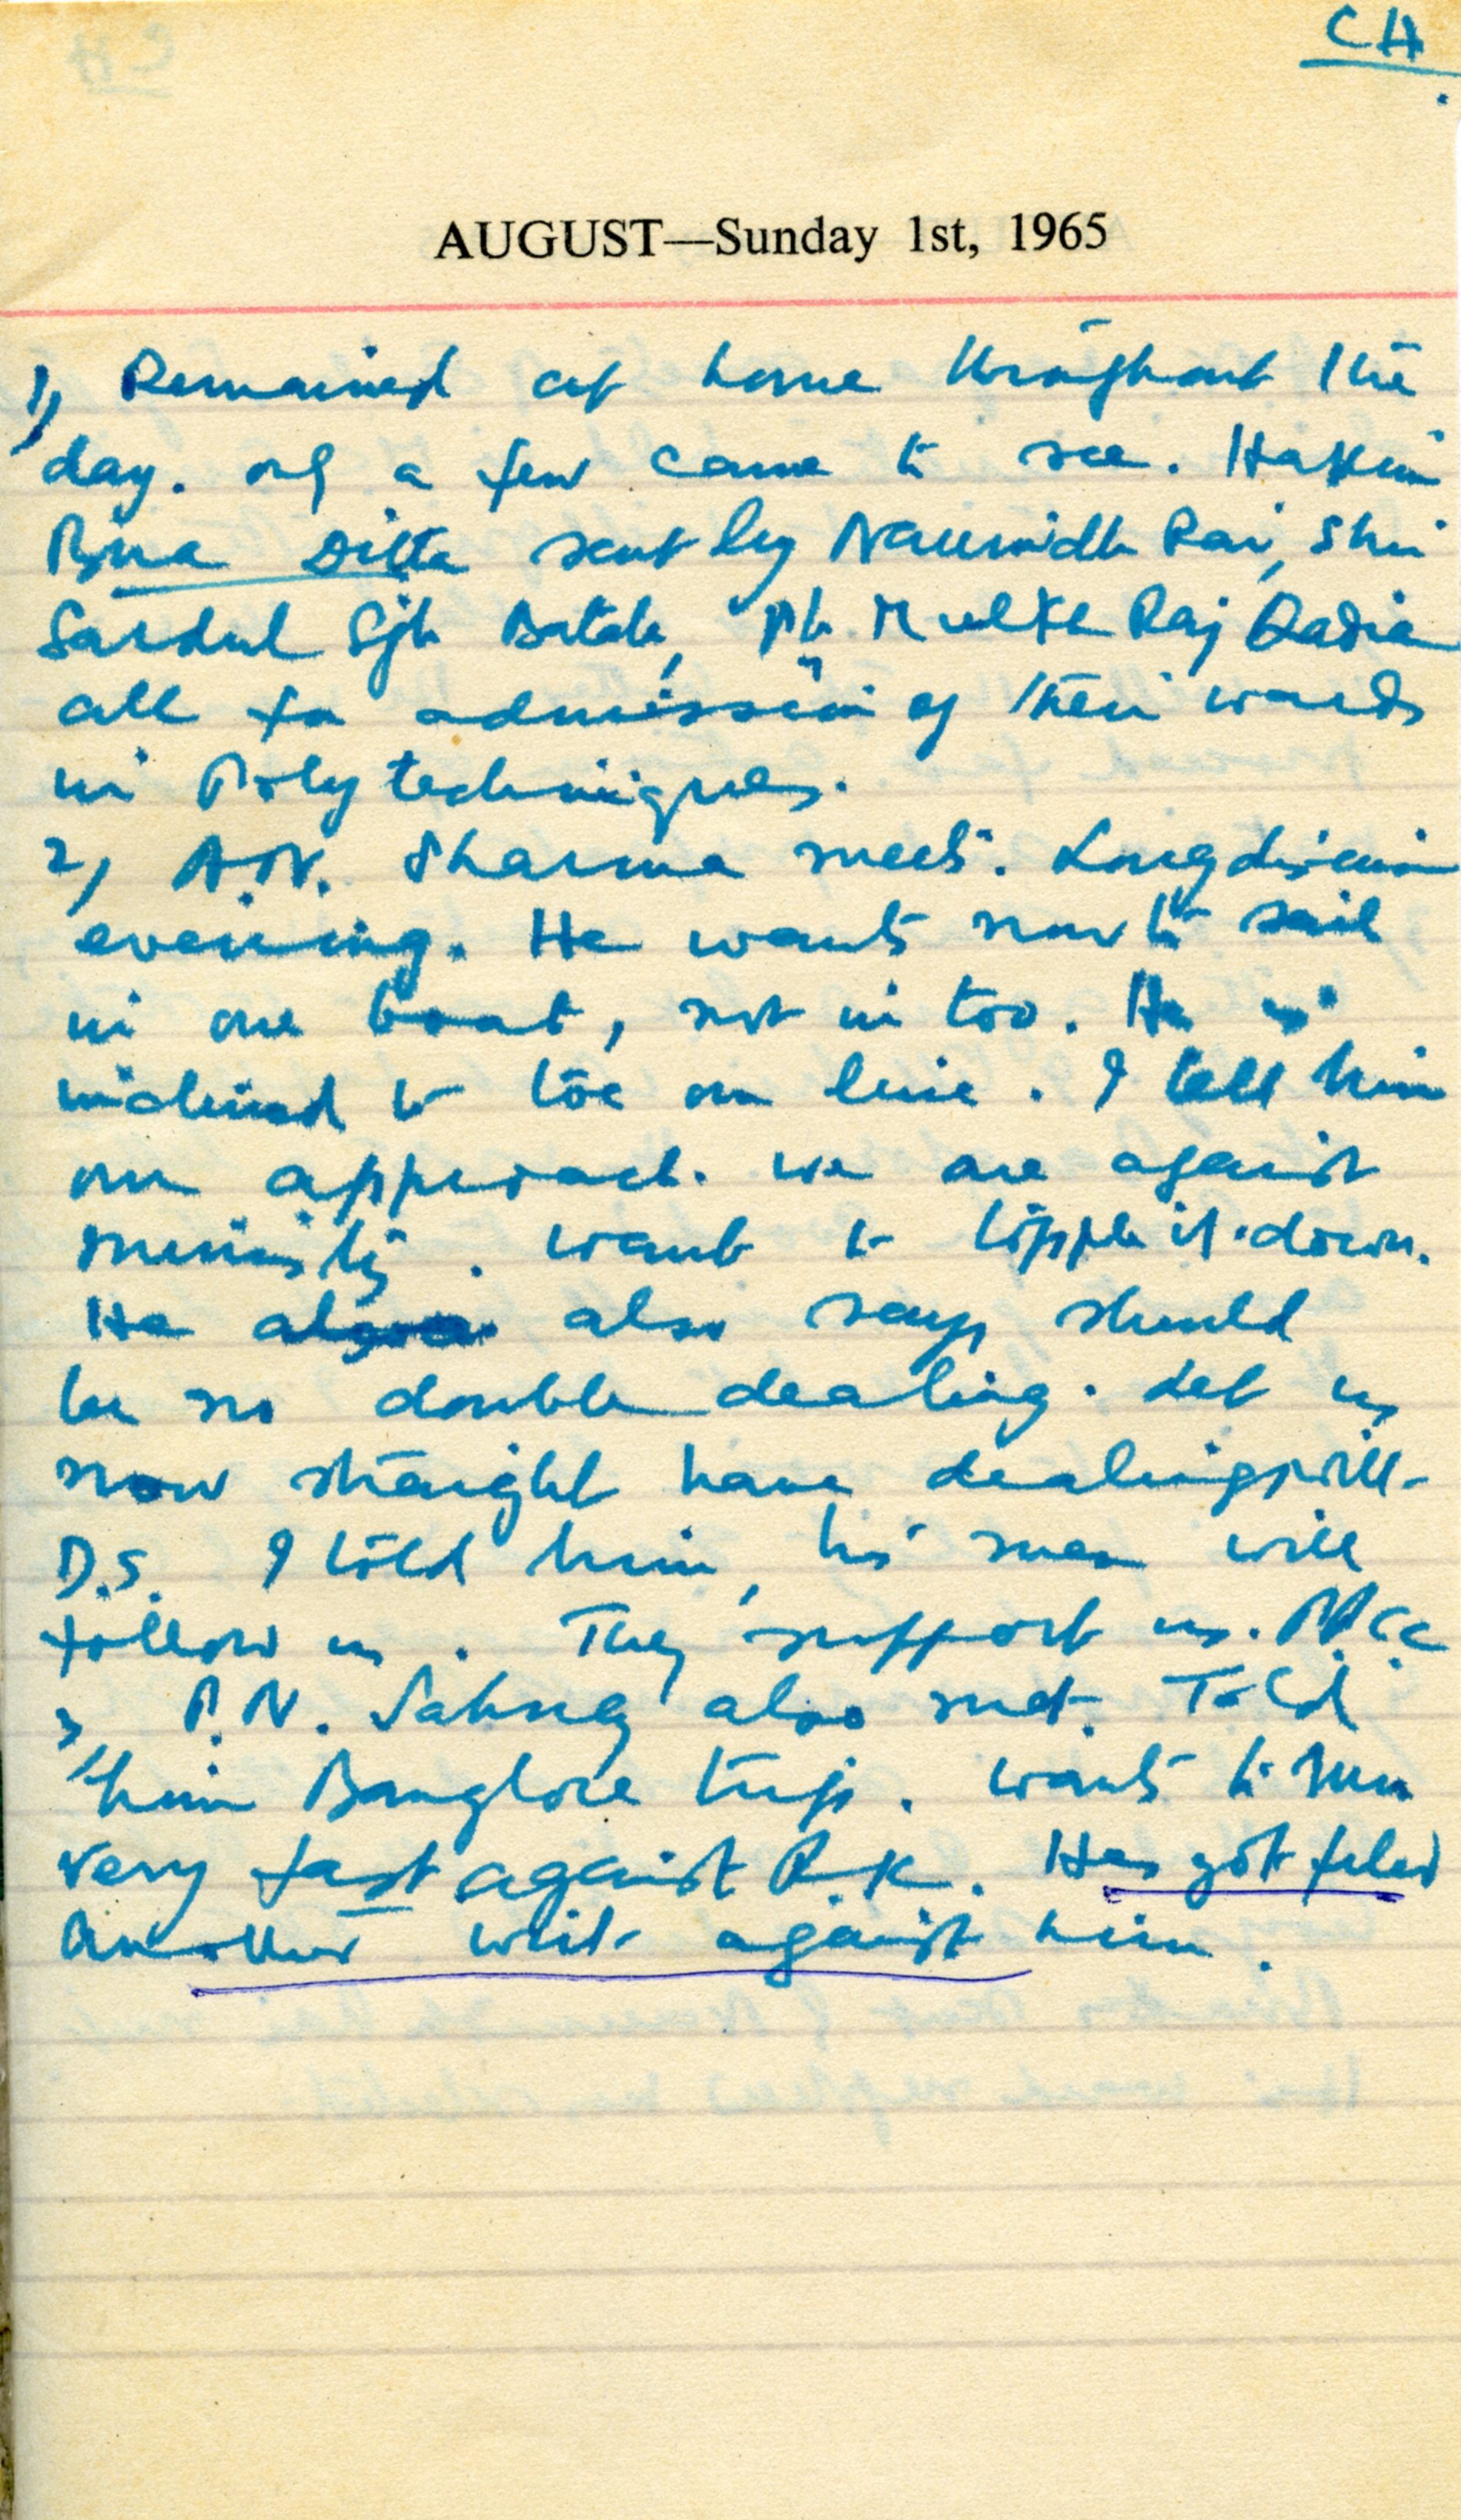 CH
AUGUST—Sunday 1st, 1965
1) Remained at home throughout the
day. only a few came to see. Hakim
Ditta sent by Naunidh Rai, Shri
Sardul Sgh Batala, Mulkh Raj Qadia
all for admission of their wards
in Polytechniques.
2) A.N. Sharma meets. Long discussion
evening. He wants now to sail
in one boat, not in too. He is
inclined to toe our line. I tell him
our approach. we are against
ministry. want to topple it down.
He also says should
be no double dealing. Let us
now straight have dealings with
D.S. I told him, his men will
follow us. They support us.
3) P.N. Sahney also met. Told
him Banglore trip. wants to run
very fast against R.K. Has got filed
Another writ against him.